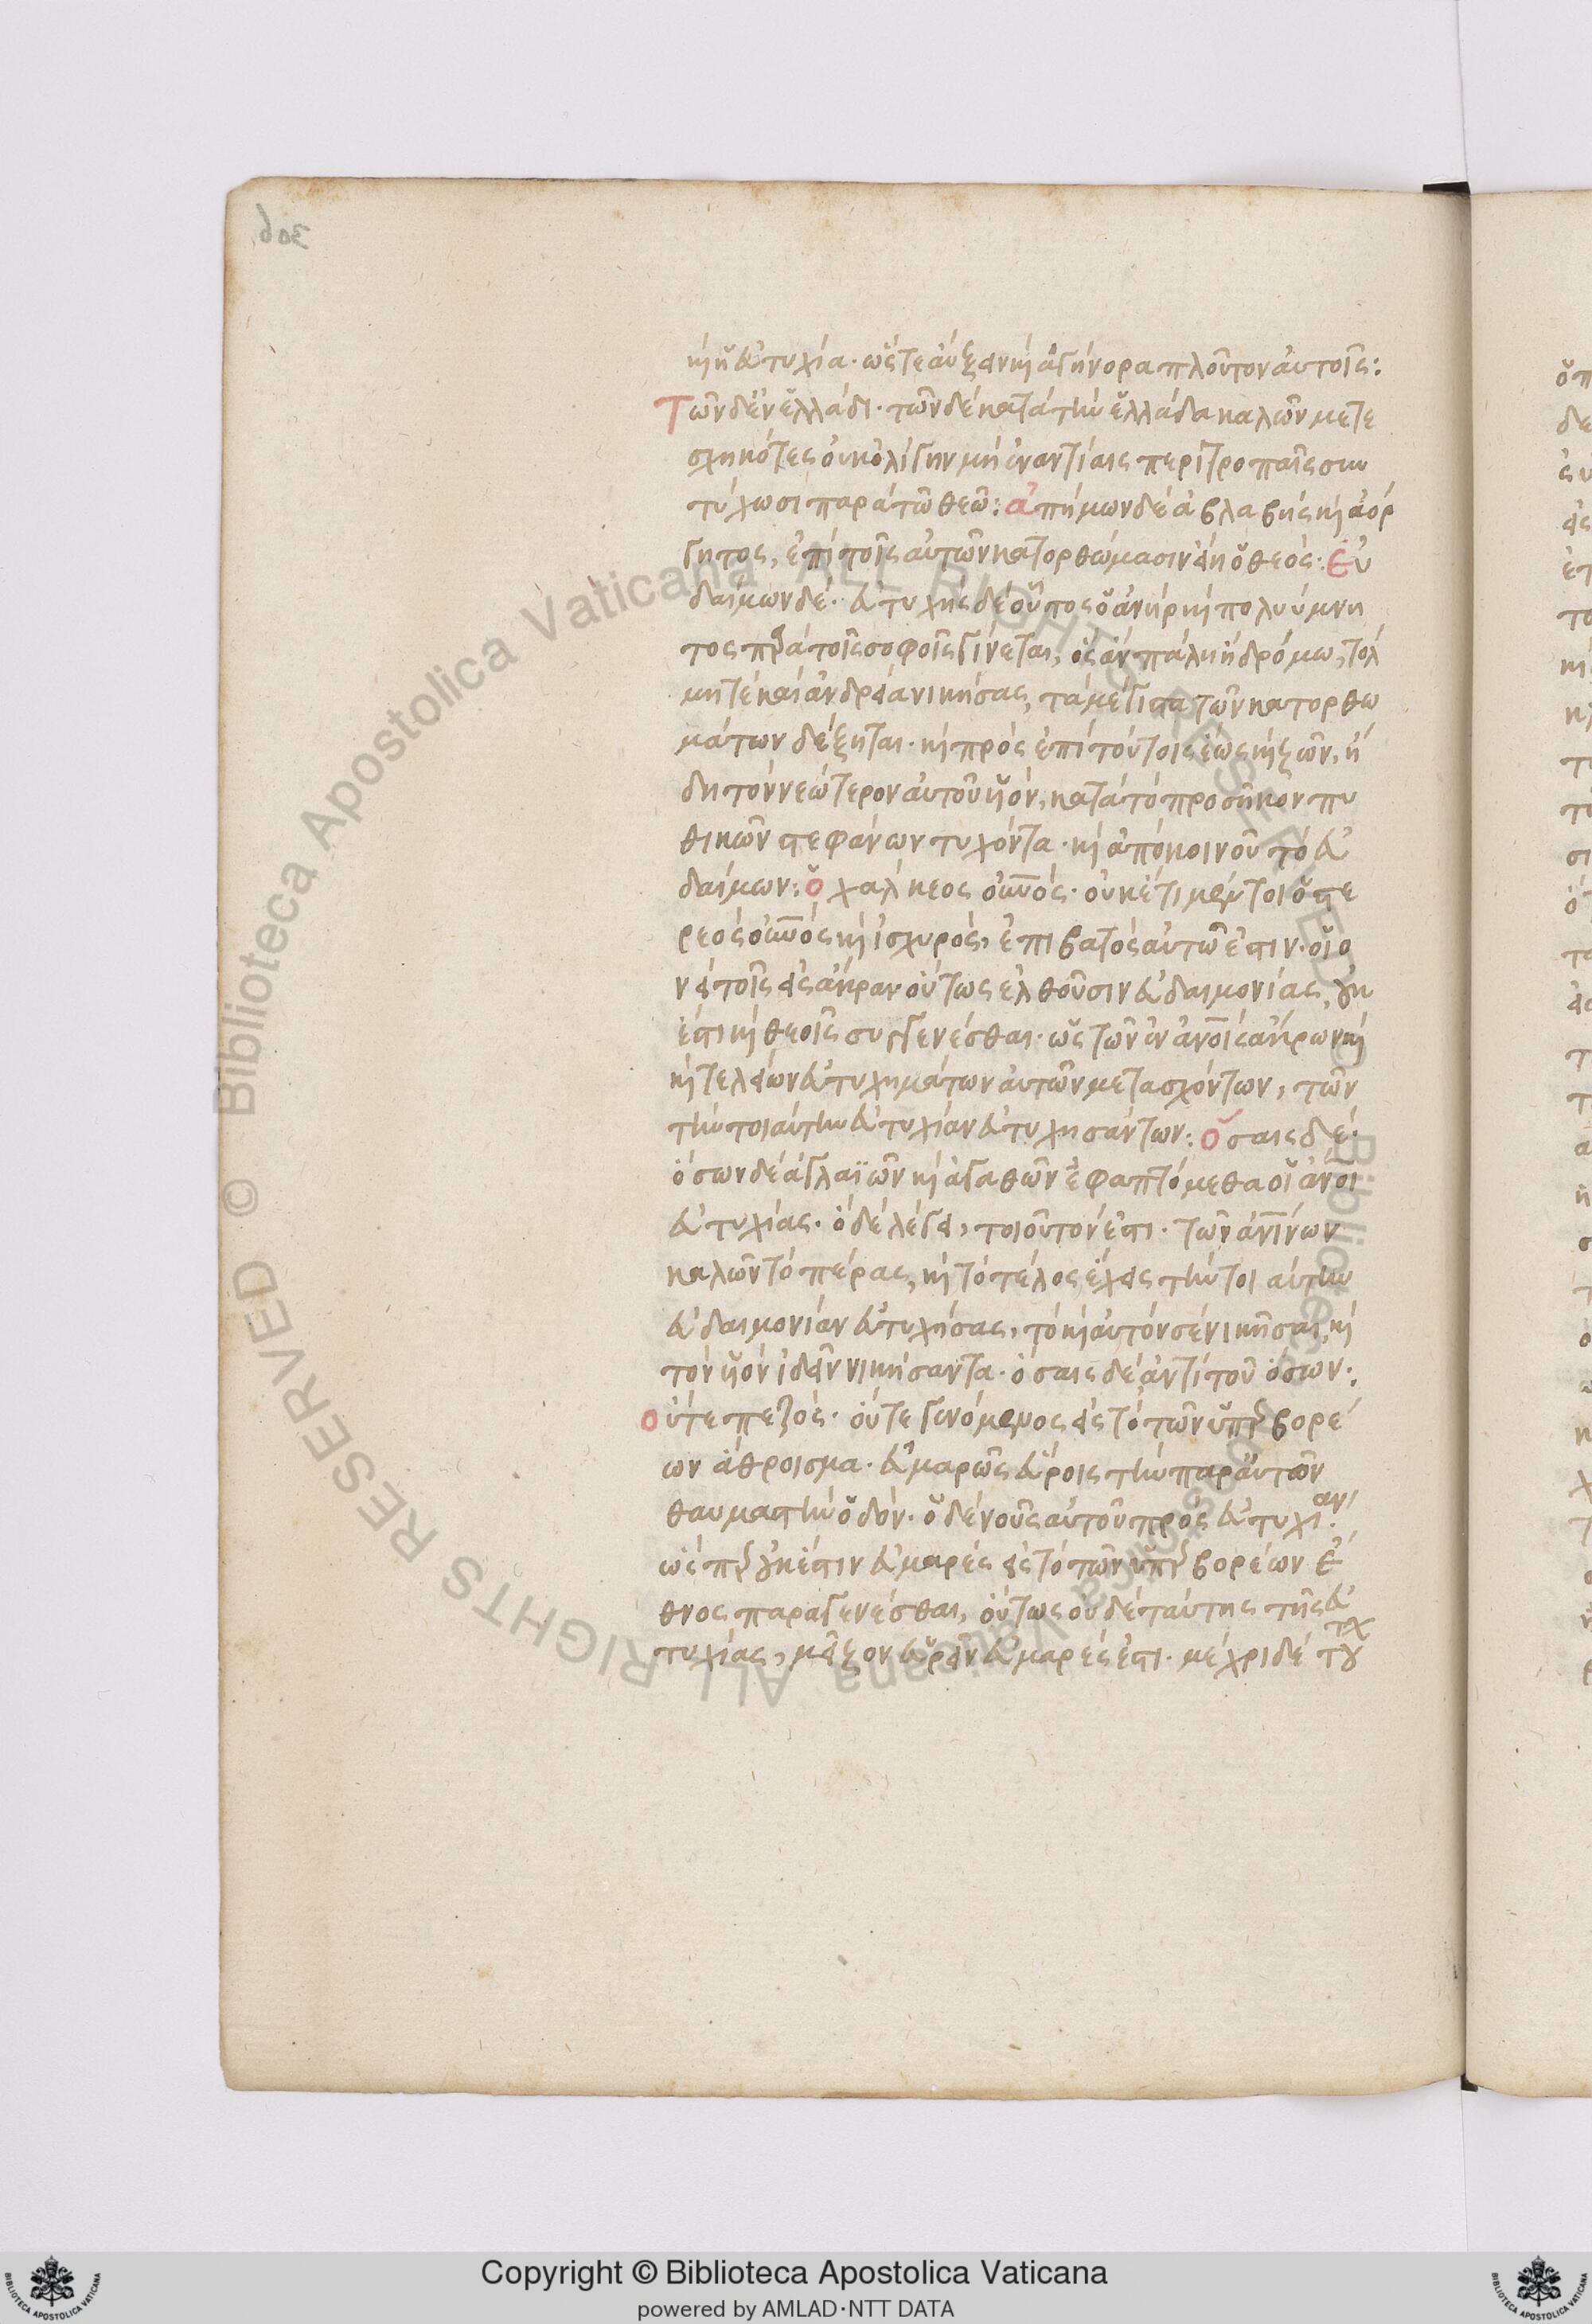 καὶ ἡ εὐτυχία· ὥστε αὔξειν καὶ ἀγήνορα πλοῦτον αὐτοῖς:
Τῶν δ' ἐν ἑλλάδι· τῶν δὲ κατὰ τὴν ἑλλάδα καλῶν μετε
σχηκότες οὐκ ὀλίγην μὴ ἐναντίαις περιτροπαῖς συν
τύχωσι παρὰ τῶν θεῶν: ἀπήμων δὲ ἀβλαβὴς καὶ ἀόρ
γητος, ἐπὶ τοῖς αὐτῶν κατορθώμασιν εἴη ὁ θεός· εὐ
δαίμων δέ· εὐτυχὴς δὲ οὗτος ὁ ἀνὴρ καὶ πολυύμνη
τος παρὰ τοῖς σοφοῖς γίνεται, ὃς ἂν πάλῃ ἢ δρόμῳ, τόλ
μῃ τὲ καὶ ἀνδρείᾳ νικήσας, τὰ μέγιστα τῶν κατορθω
μάτων δέξηται· καὶ πρὸς ἐπὶ τούτοις ἕως καὶ ζῶν, ἴ
δῃ τὸν νεώτερον αὐτοῦ υἱόν, κατὰ τὸ προσῆκον πυ
θικῶν στεφάνων τυχόντα· καὶ ἀπὸ κοινοῦ τὸ εὐ
δαίμων: ὁ χάλκεος οὐνός· οὐκέτι μέντοι ὁ στε
ρεὸς οὐνὸς καὶ ἰσχυρός, ἐπιβατὸς αὐτῷ ἐστιν· οἷο
ν εἰ τοῖς εἰς ἄκραν οὕτως ἐλθοῦσιν εὐδαιμονίας, οὐκ
ἔστι καὶ θεοῖς συγγενέσθαι· ὡς τῶν ἐν ἀνοις ἄκρων καὶ
καὶ τελείων εὐτυχημάτων αὐτῶν μετασχόντων, τῶν
τὴν τοιαύτην εὐτυχίαν εὐτυχησάντων: ὅσαις δέ·
ὅσων δὲ ἀγλαϊῶν καὶ ἀγαθῶν ἐφαπτόμεθα οἱ ἄνοι
εὐτυχίας· ὃ δὲ λέγει, τοιοῦτόν ἐστι· τῶν ἀνίνων
καλῶν τὸ πέρας, καὶ τὸ τέλος ἔχεις τὴν τοιαύτην
εὐδαιμονίαν εὐτυχήσας, τὸ καὶ αὐτόν σε νικῆσαι, καὶ
τὸν υἱὸν ἰδεῖν νικήσαντα· ὅσαις δὲ ἀντὶ τοῦ ὅσων:
οὔτε πεζός· οὔτε γενόμενος εἰς τὸ τῶν ὑπερβορέ
ων ἄθροισμα· εὐμαρῶς εὕροις τὴν παρ' αὐτῶν
θαυμαστὴν ὁδόν· ὁ δὲ νοῦς αὐτοῦ πρὸς εὐτυχίαν·
ὥσπερ οὐκ ἔστιν εὐμαρὲς εἰς τὸ τῶν ὑπερβορέων ἔ
θνος παραγενέσθαι, οὕτως οὐδὲ ταύτης τῆς εὐ
τυχίας, μεῖζον εὑρεῖν εὐμαρές ἐστι· μέχρι δὲ τού